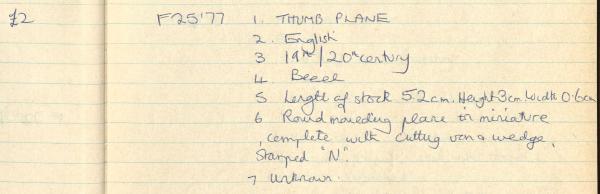 £2 F25'77 1. THUMB PLANE
2. English
3 19th/20th century
4 Beech
5 Length of stock 5.2cm. Height 3cm Width 0.6cm
6 Round moulding plane in miniature
, complete with cutting iron & wedge.
Stamped "N".
7 Unknown.